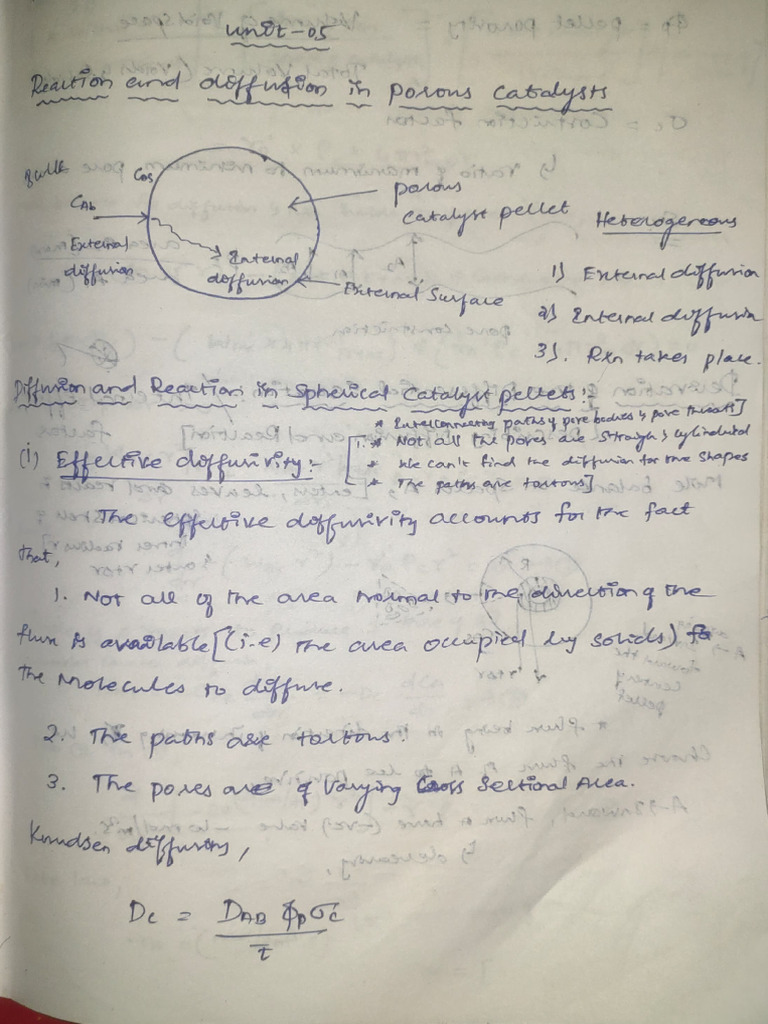 Unit-05
Reaction and diffusion in porous catalysts
CAs
CAb
External
diffusion
Internal
diffusion
porous
catalyst pellet
External Surface
Heterogeneous
1) External diffusion
2) Internal diffusion
3). Rxn takes place.
Diffusion and Reaction in Spherical Catalyst pellets:-
(i) Effective diffusivity:-
* Interconnecting paths of pore bodies & pore throats]
* Not all the pores are straight & cylindrical
* We can't find the diffusion for the shapes
* The paths are tortous]
The effective diffusivity accounts for the fact
that,
1. Not all of the area normal to the direction of the
flux is available [(i.e) the area occupied by solids) for
the molecules to diffuse.
2. The paths are tortous.
3. The pores are of varying Cross Sectional Area.
Knudsen diffusion,
De = DAB ϕp σc
τ